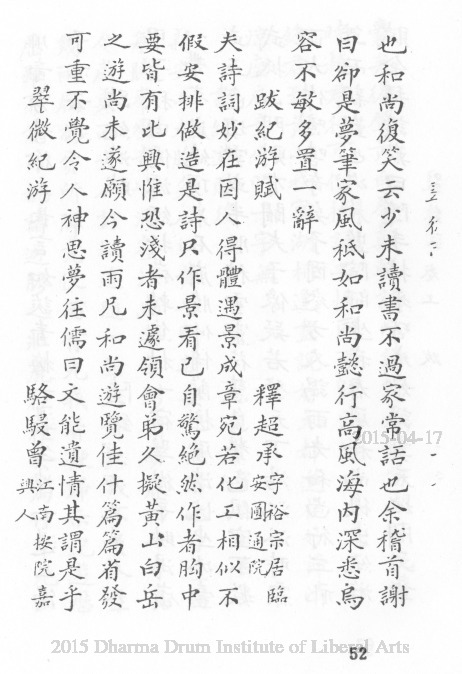 也和尚復笑云少未讀書不過家常話也余稽首謝
曰卻是夢筆家風祇如和尚懿行高風海內深悉烏
容不敏多置一辭
跋紀游賦
釋超承字裕宗居臨安圓通院
夫詩詞妙在因人得體遇景成章宛若化工相似不
假安排做造是詩只作景看已自驚絕然作者胸中
要皆有此興惟恐淺者未遽領會弟久擬黃山白岳
之遊尚未遂願今讀雨凡和尚遊覽佳什篇篇省發
可重不覺令人神思夢往儒曰文能遣情其謂是乎
翠微紀游
駱駸曾江南按院嘉興人
2015-04-17
2015 Dharma Drum Institute of Liberal Arts
52